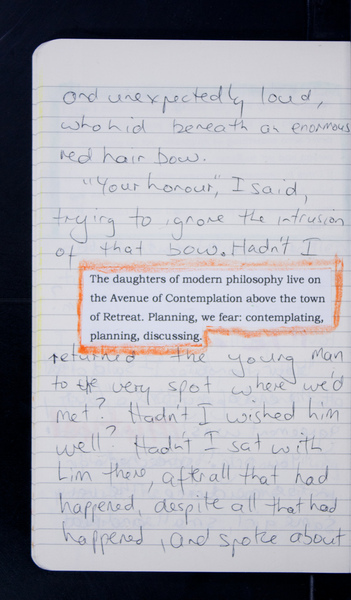 and unexpectedly loud,
who hid beneath an enormous
red hair bow.
"Your honour", I said,
trying to ignore the intrusion
of that bow. Hadn't I
The daughters of modern philosophy live on
the Avenue of Contemplation above the town
of Retreat. Planning, we fear: contemplating,
planning, discussing.
returned the young man
to the very spot where we'd
met? Hadn't I wished him
well? Hadn't I sat with
him there, after all that had
happened, despite all that had
happened, and spoke about